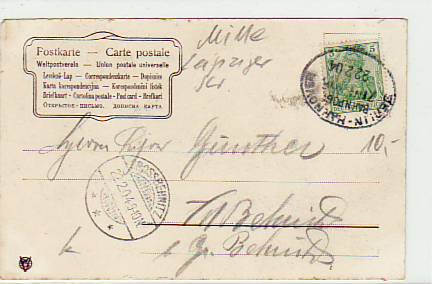 Postkarte — Carte postale
Weltpostverein — Union postale universelle
Levelező-Lap — Correspondenzkarte — Dopisnice
Karta korespondencyjna — Korespondenční lístek
Briefkaart — Cartolina postale — Post card — Brefkort
ОТКРЫТОЕ ПИСЬМО. ДОПИСНА КАРТА
5
BERLIN-HANNOVER
BAHNPOST
22.2.04
Herrn
Günther
10,-
GROSSBEHNITZ
22.2.04
Behnitz
Gr. Behnitz